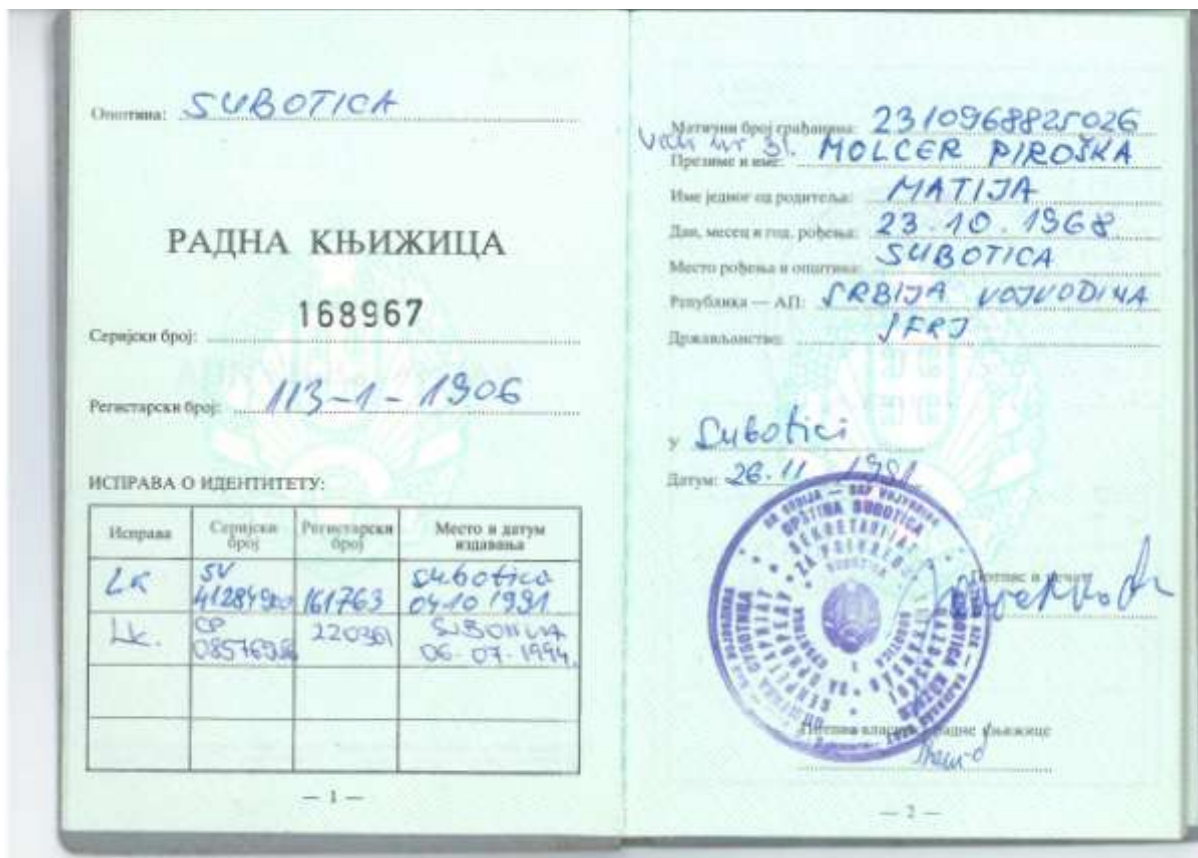 Општина: SUBOTICA
РАДНА КЊИЖИЦА
Серијски број: 168967
Регистарски број: 113-1-1906
ИСПРАВА О ИДЕНТИТЕТУ:
Исправа Серијски број Регистарски број Место и датум издавања
LK SV 161763 Subotica 04.10 1991
Lk. CP 220361 SUBOTICA 06-07-1994.
— 1 —
Матични број грађанина: 2310968825026
Презиме и име: MOLCER PIROŠKA
Име једног од родитеља: MATIJA
Дан, месец и год. рођења: 23.10.1968
Место рођења и општина: SUBOTICA
Република — АП: SRBIJA VOJVODINA
Држављанство: SFRJ
У Subotici
Датум: 26.11 1991
Потпис и печат
OPŠTINA SUBOTICA
SEKRETARIJAT
ZA PRIVREDU
Потпис власника радне књижице
— 2 —